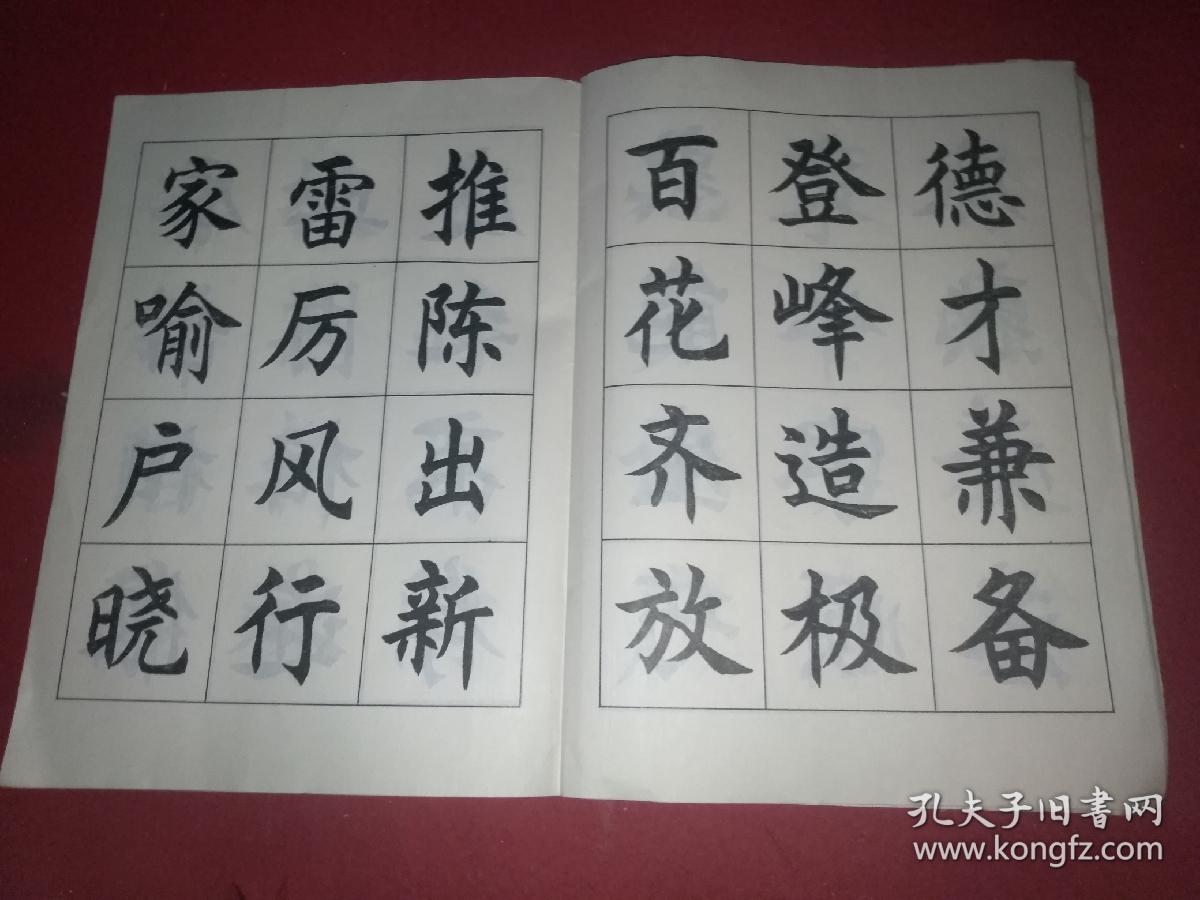 德才兼备
登峰造极
百花齐放
推陈出新
雷厉风行
家喻户晓
孔夫子旧书网
www.kongfz.com